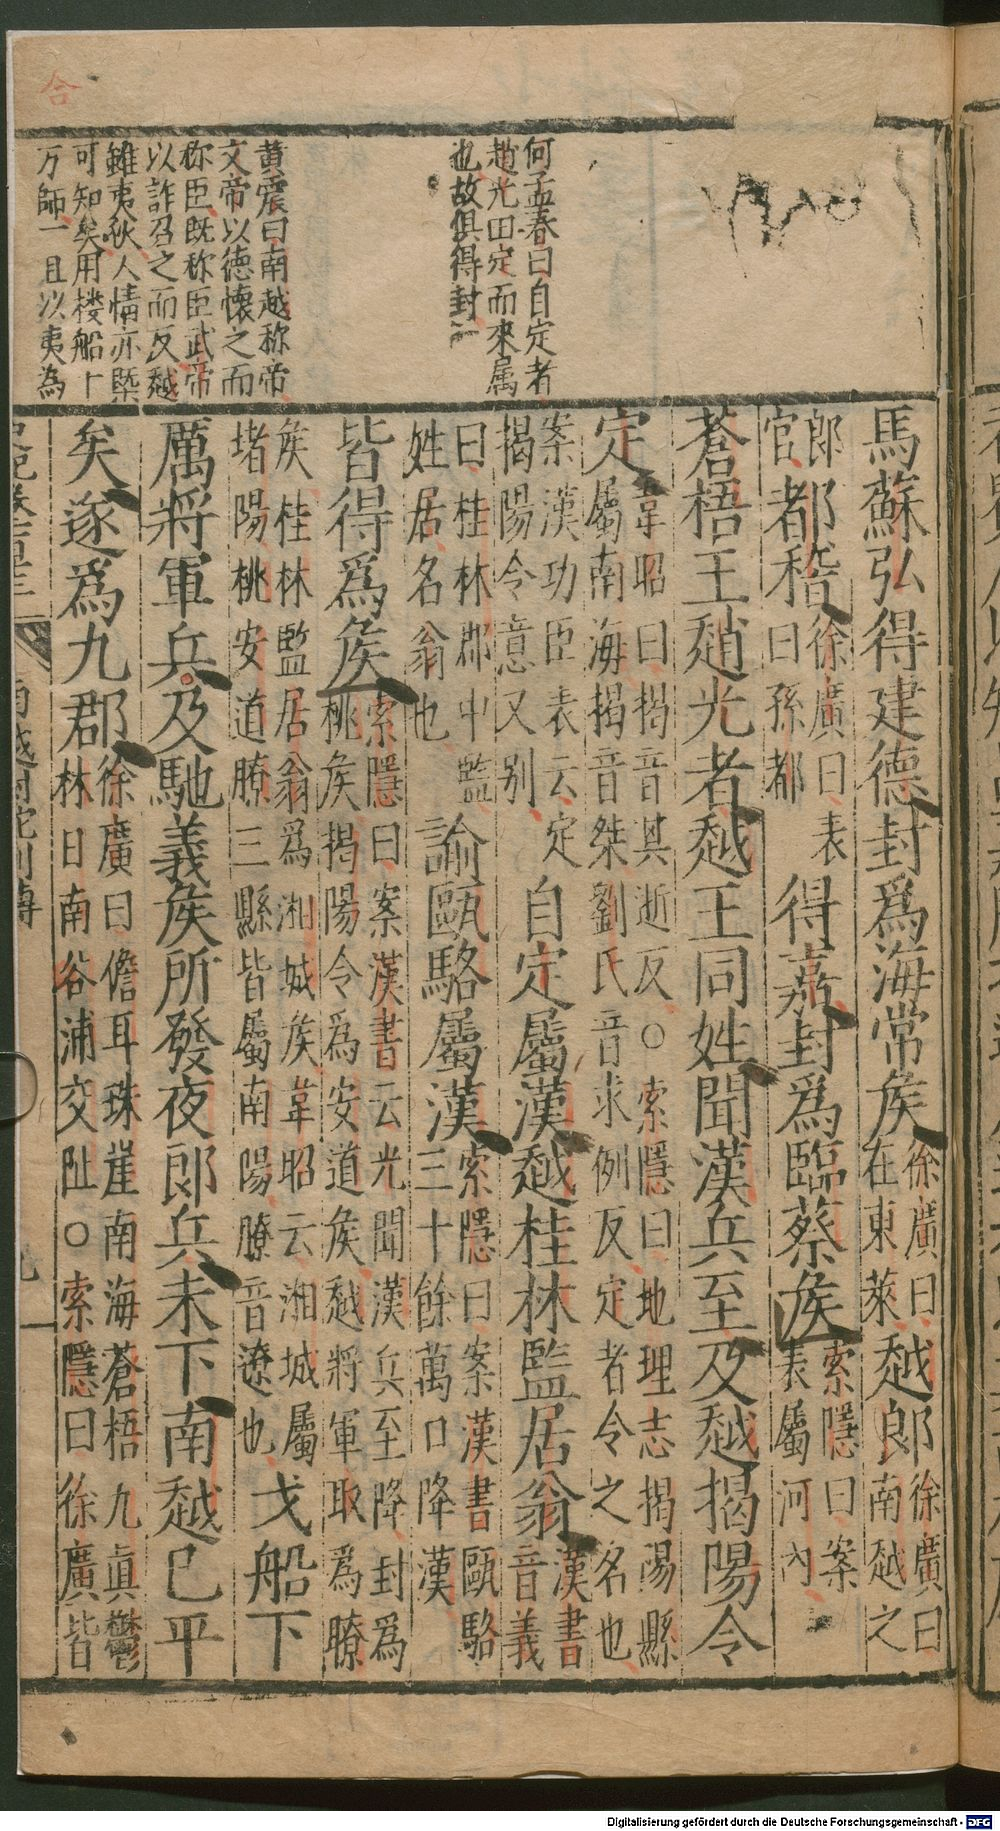 合
何孟春曰自定者
趙光田定而來属
也故俱得封云
黃震曰南越称帝
文帝以德懷之而
称臣既称臣武帝
以詐召之而反越
雖夷狄人情亦槩
可知矣用楼船十
万師一旦以夷為
馬蘇弘得建德封爲海常矦徐廣曰在東萊越郎徐廣曰南越之
郎官都稽徐廣曰表曰孫都得嘉封爲臨蔡矦索隱曰案表屬河內
蒼梧王趙光者越王同姓聞漢兵至及越揭陽令
定韋昭曰揭音其逝反○索隱曰地理志揭陽縣屬南海揭音桀劉氏音求例反定者令之名也
案漢功臣表云定揭陽令意又别自定屬漢越桂林監居翁漢書音義
曰桂林郡中監姓居名翁也諭甌駱屬漢索隱曰案漢書甌駱三十餘萬口降漢
皆得爲矦索隱曰案漢書云光聞漢兵至降封爲桃矦揭陽令為安道矦越將軍取為膫
矦桂林監居翁爲湘城矦韋昭云湘城屬堵陽桃安道膫三縣皆屬南陽膫音遼也戈船下
厲將軍兵及馳義矦所發夜郎兵未下南越已平
矣遂爲九郡徐廣曰儋耳珠崖南海蒼梧九眞鬱林日南谷浦交阯○索隱曰徐廣皆
南越尉佗列傳
九
Digitalisierung gefördert durch die Deutsche Forschungsgemeinschaft - DFG